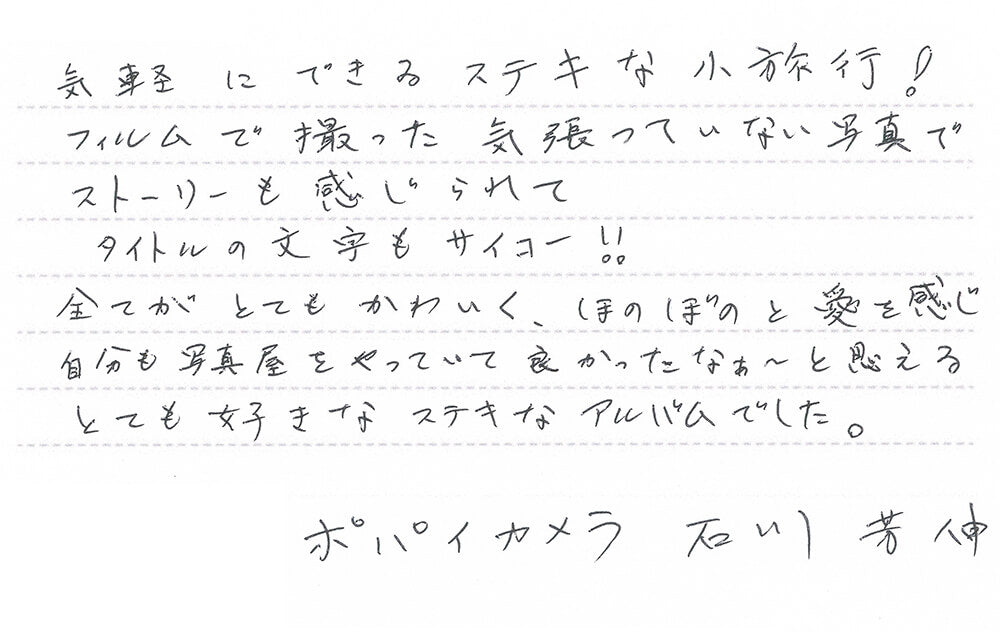 気軽にできるステキな小旅行!
フィルムで撮った気張っていない写真で
ストーリーも感じられて
タイトルの文字もサイコー!!
全てがとてもかわいく、ほのぼのと愛を感じ
自分も写真屋をやっていて良かったなぁ〜と思える
とても好きなステキなアルバムでした。
ポパイカメラ 石川 芳伸